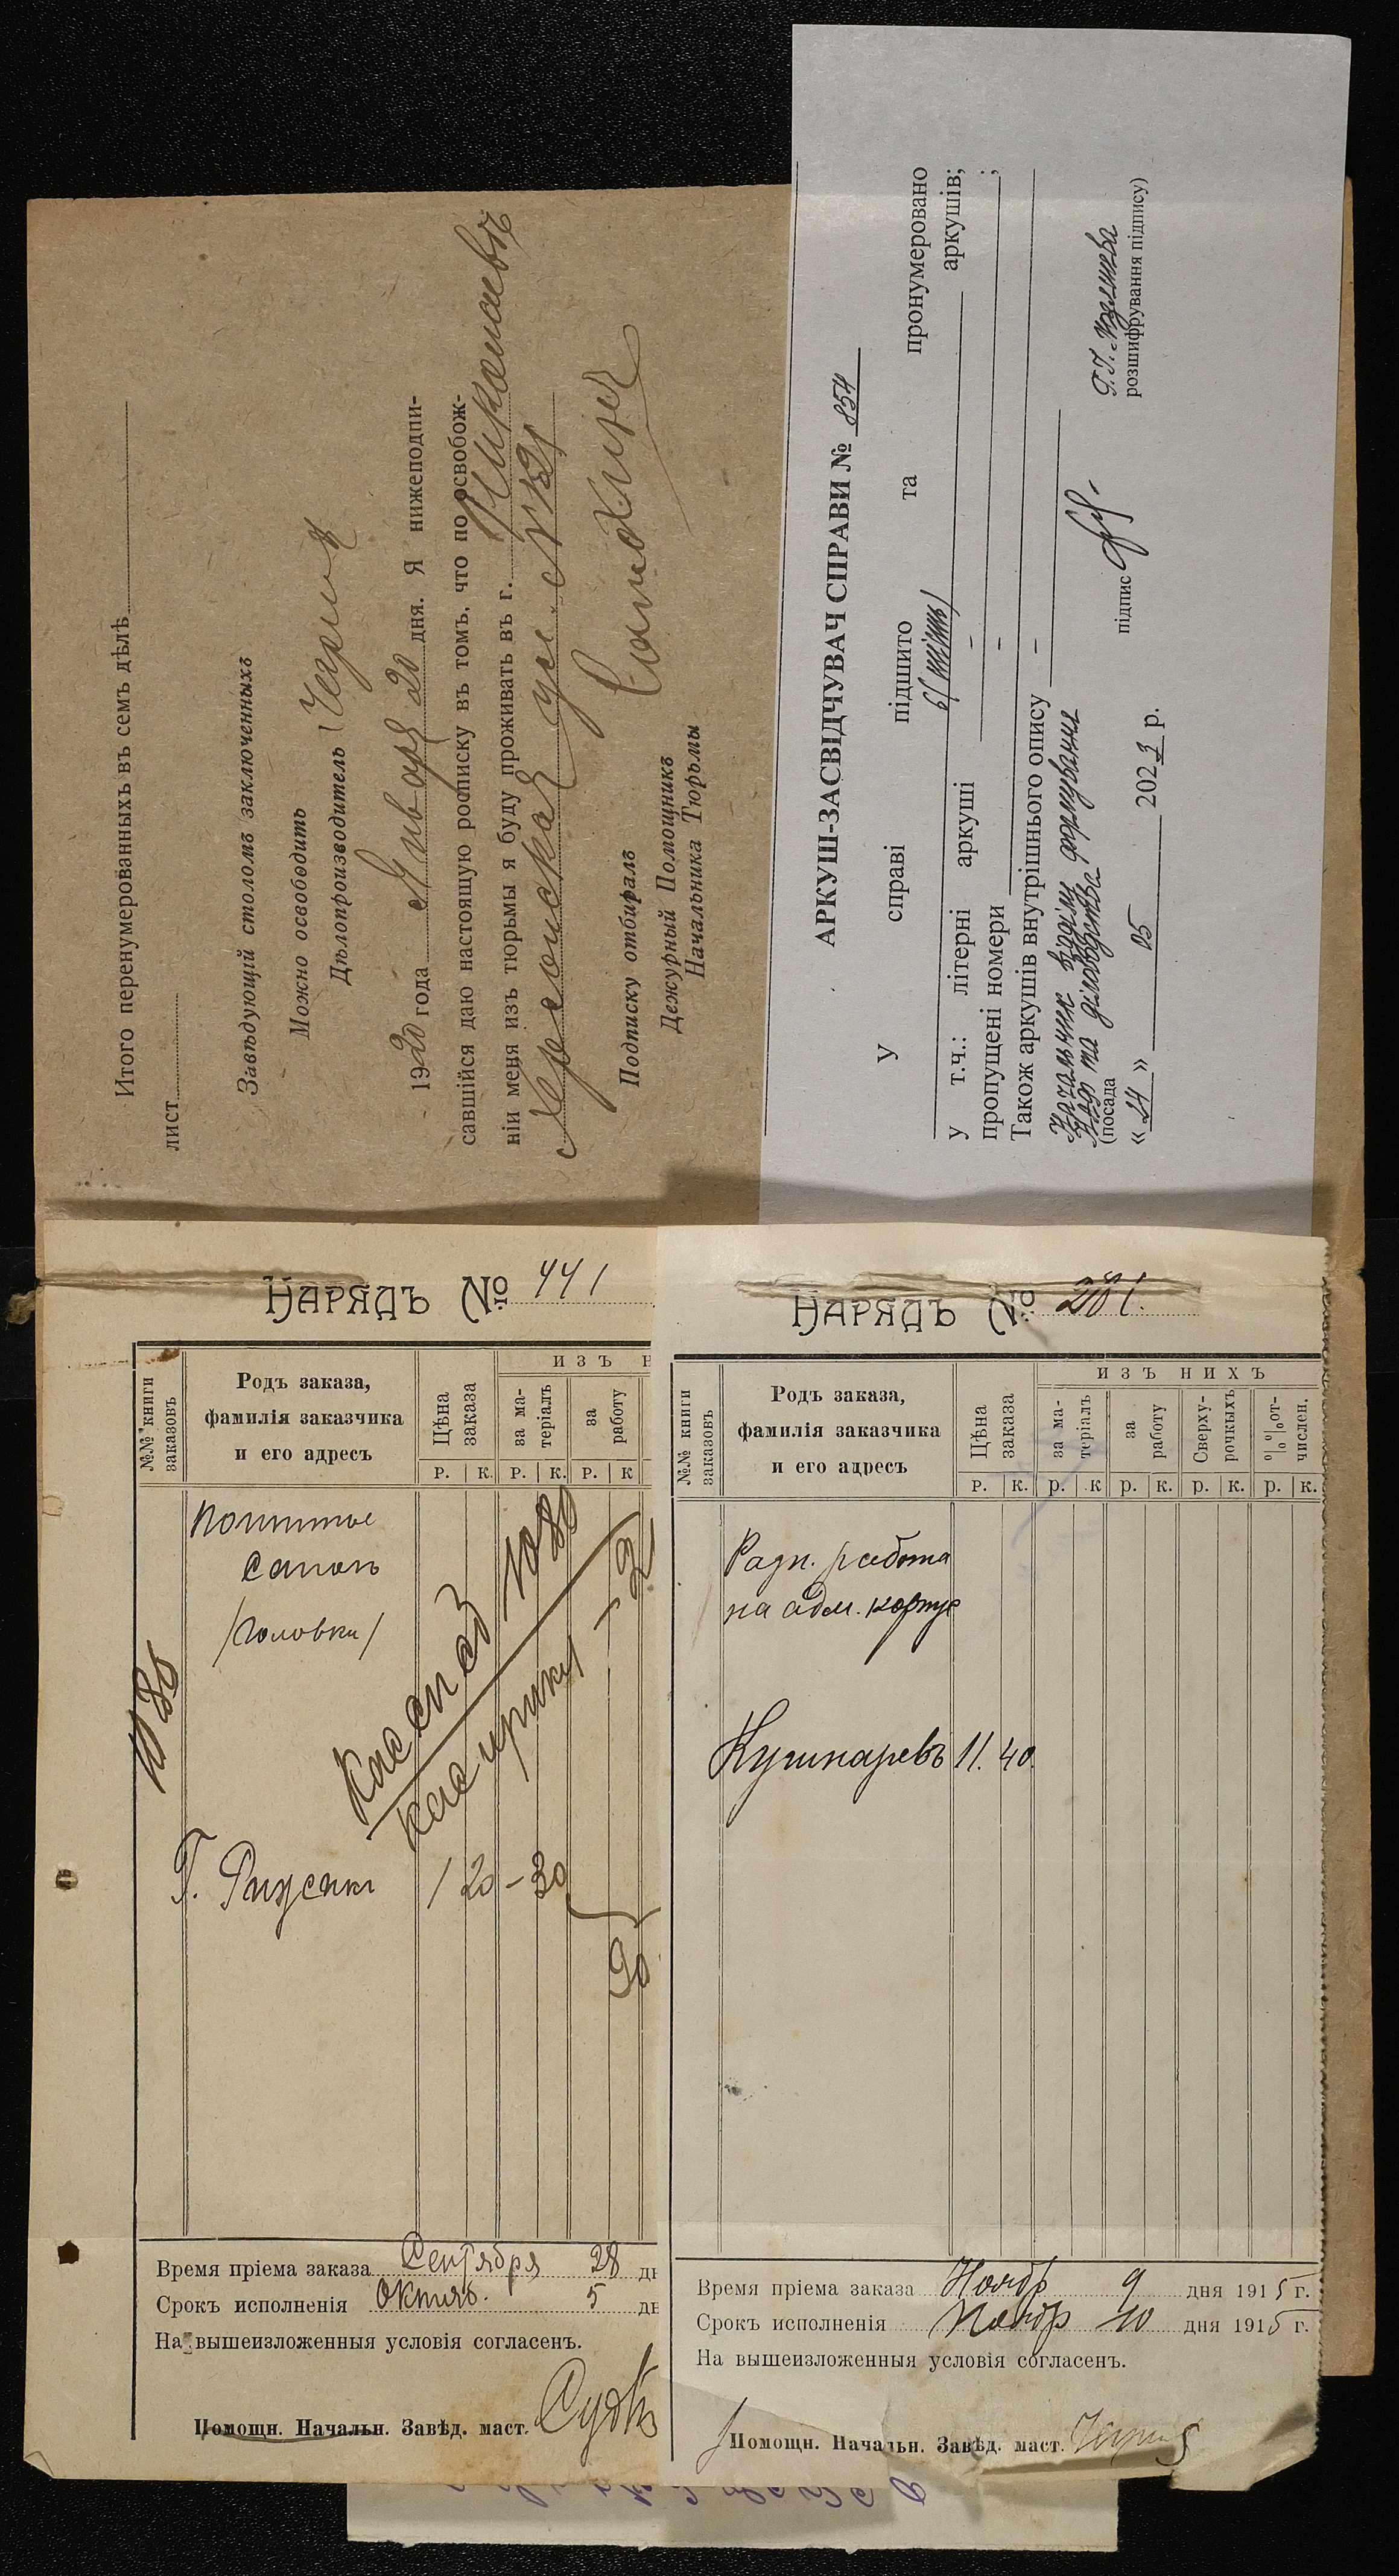 Итого перенумерованныхъ въ семъ дѣлѣ
лист
Завѣдующій столомъ заключенныхъ
Можно освободить
Дѣлопроизводитель
1920 года Января 20 дня. Я нижеподпи-
савшійся даю настоящую росписку въ томъ, что по освобож-
ніи меня изъ тюрьмы я буду проживать въ г. Николаевъ
Херсонская ул. №
Подписку отбиралъ
Дежурный Помощникъ
Начальника Тюрьмы
АРКУШ-ЗАСВІДЧУВАЧ СПРАВИ № 854
У справі підшито та пронумеровано
6 (шість) аркушів;
у т.ч.: літерні аркуші - ;
пропущені номери -
Також аркушів внутрішнього опису -
Начальник відділу формування
НАФ та діловодства
(посада підпис розшифрування підпису)
« 24 » 05 2023 р.
Нарядъ № 441
№№ книги заказовъ
Родъ заказа,
фамилія заказчика
и его адресъ
Цѣна заказа
изъ н
за ма-
теріалъ
за работу
р. к. р. к. р. к
сапогъ
/Головки/
1080
1080
20 - 30
Время пріема заказа Сентября 28 дн
Срокъ исполненія Октяб. 5 дн
На вышеизложенныя условія согласенъ.
Помощн. Начальн. Завѣд. маст.
Нарядъ № 281.
№№ книги заказовъ
Родъ заказа,
фамилія заказчика
и его адресъ
Цѣна заказа
изъ нихъ
за ма-
теріалъ
за работу
Сверху-
рочныхъ
%%от-
числен.
р. к. р. к р. к. р. к. р. к.
Разн. работа
на адм. корпус
Кушнаревъ 11. 40.
Время пріема заказа Ноябр 9 дня 1915 г.
Срокъ исполненія Ноябр 10 дня 1915 г.
На вышеизложенныя условія согласенъ.
Помощн. Начальн. Завѣд. маст.